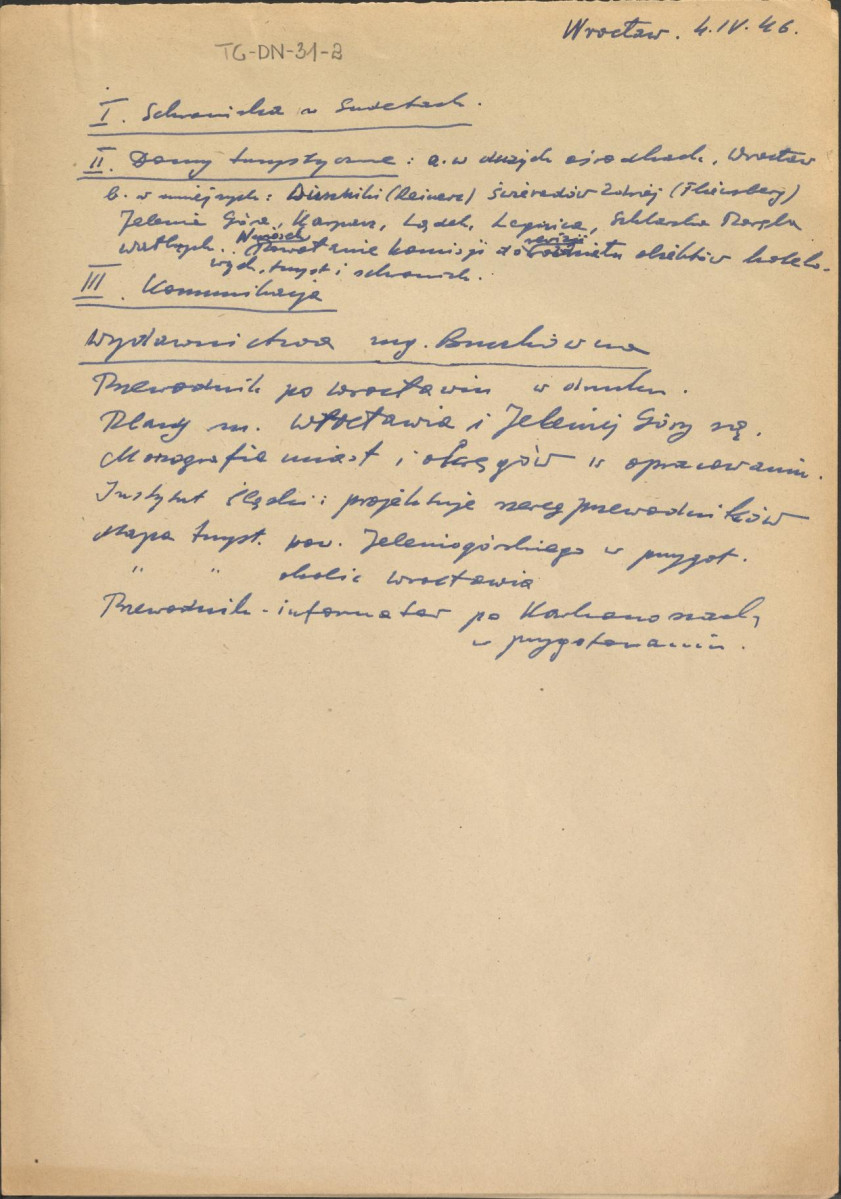 Wrocław. 4.IV.46.
TG-DN-31-2
I. Schroniska w Sudetach.
II. Domy turystyczne: a. w dużych ośrodkach, Wrocław
b. w mniejszych: (Reinerz) Świeradów Zdrój (Flinsberg)
Jelenia Góra, Karpacz, Lądek, Legnica, Szklarska Poręba
Wałbrzych. Wniosek
Powołanie komisji do rewizji obiektów hotelo-
wych, turyst i schronisk.
III. Komunikacja
Wydawnictwa mg.
Przewodnik po Wrocławiu w druku.
Plany m. Wrocławia i Jeleniej Góry są.
Monografie miast i okręgów w opracowaniu.
Instytut Śląski: projektuje szereg przewodników
Mapa turyst. pow. Jeleniogórskiego w przygot.
" " okolic Wrocławia
Przewodnik-informator po Karkonoszach,
w przygotowaniu.